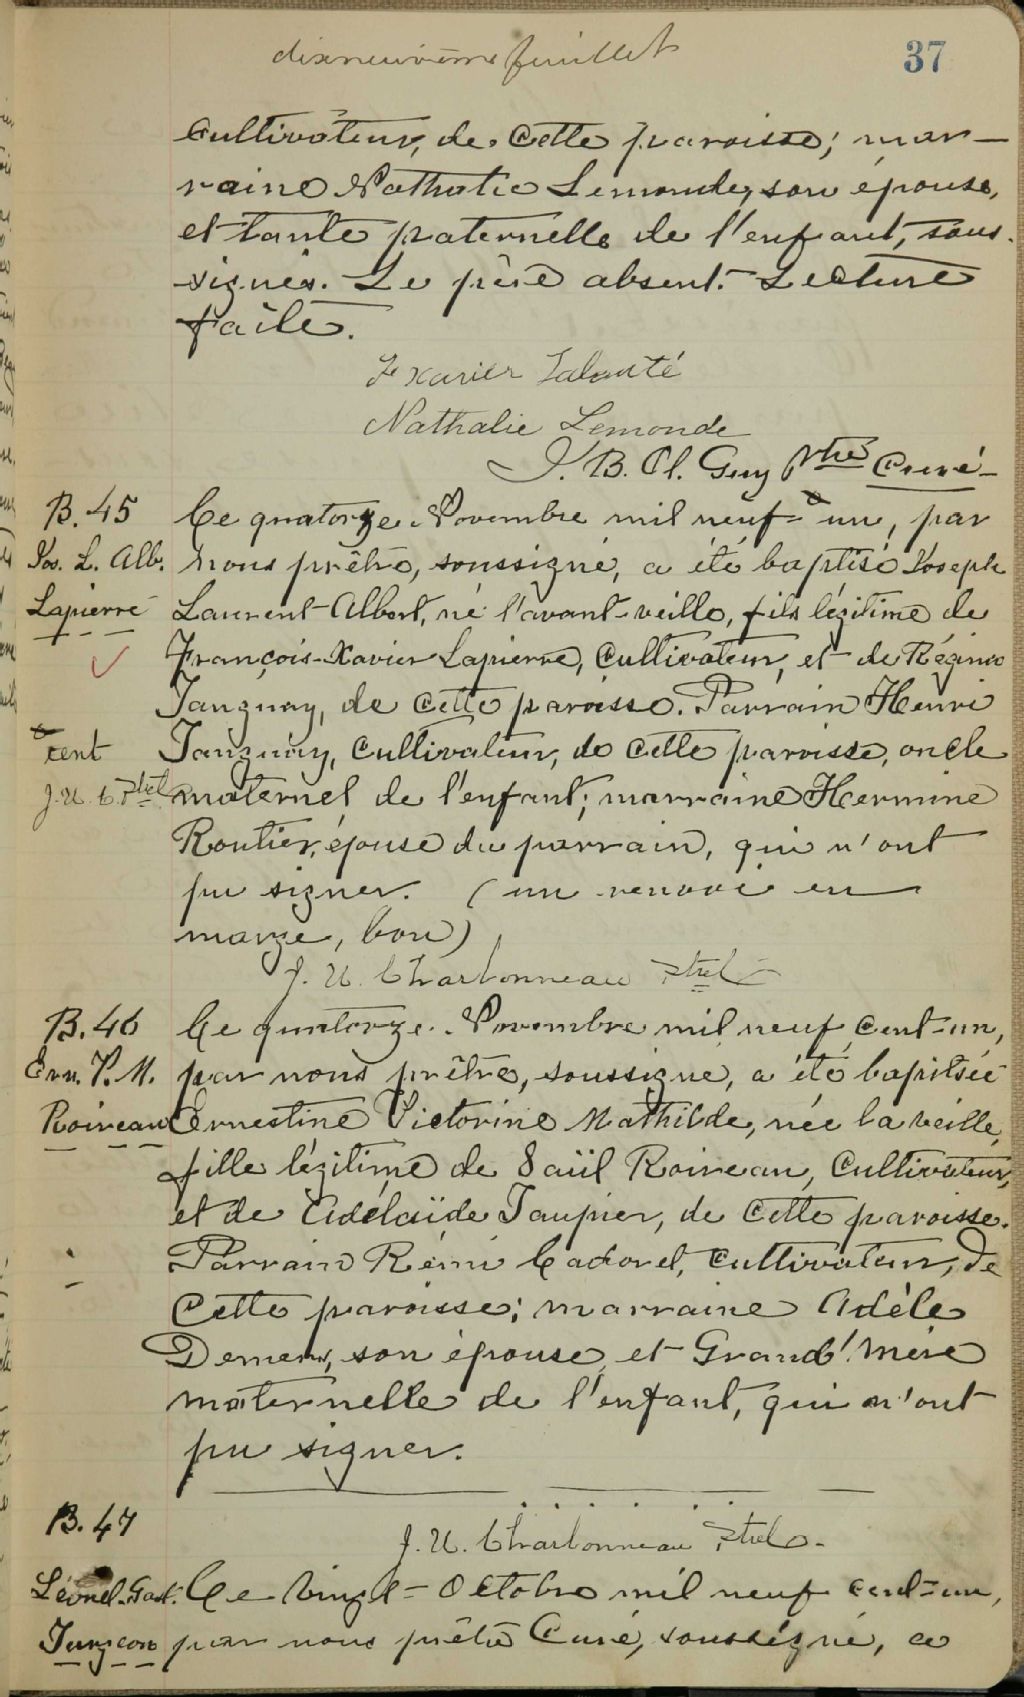 dixneuvième feuillet
37
Cultivateur, de cette paroisse; mar-
raine Nathalie Lemonde, son épouse,
et tante paternelle de l'enfant, sous-
signés. Le père absent. Lecture
faite.
F Xavier
Nathalie Lemonde
J. B. Cl. Guy Ptre Curé
B. 45
Jos. L. Alb.
Lapierre
Ce quatorze Novembre mil neuf un, par
nous prêtre, soussigné, a été baptisé Joseph
Laurent Albert, né l'avant-veille, fils légitime de
François-Xavier Lapierre, Cultivateur, et de Régina
Tanguay, de cette paroisse. Parrain Henri
Tanguay, Cultivateur, de cette paroisse, oncle
maternel de l'enfant; marraine Hermine
Routier, épouse du parrain, qui n'ont
pu signer. (un renvoi en
marge, bon)
cent
J. U. C. Ptre
J. U. Charbonneau Ptre
B. 46
Ern. V. M.
Roireau
Ce quatorze Novembre mil neuf cent-un,
par nous prêtre, soussigné, a été bapitsée
Ernestine Victorine Mathilde, née la veille,
fille légitime de Saül Roireau, Cultivateur,
et de Adélaïde Taupier, de cette paroisse.
Parrain Rémi Cadoret, cultivateur, de
cette paroisse; marraine Adèle
Demers, son épouse et Grand'Mère
maternelle de l'enfant, qui n'ont
pu signer.
J. U. Charbonneau Ptre
B. 47
Léonel-Gast.
Turgeon
Ce vingt-Octobre mil neuf cent-un,
par nous prêtre Curé, soussigné, a